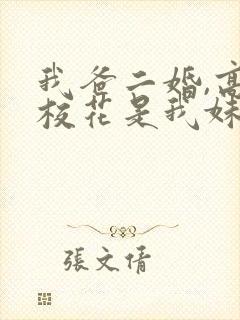 我爸二婚,高
校花是我妹
張文倩